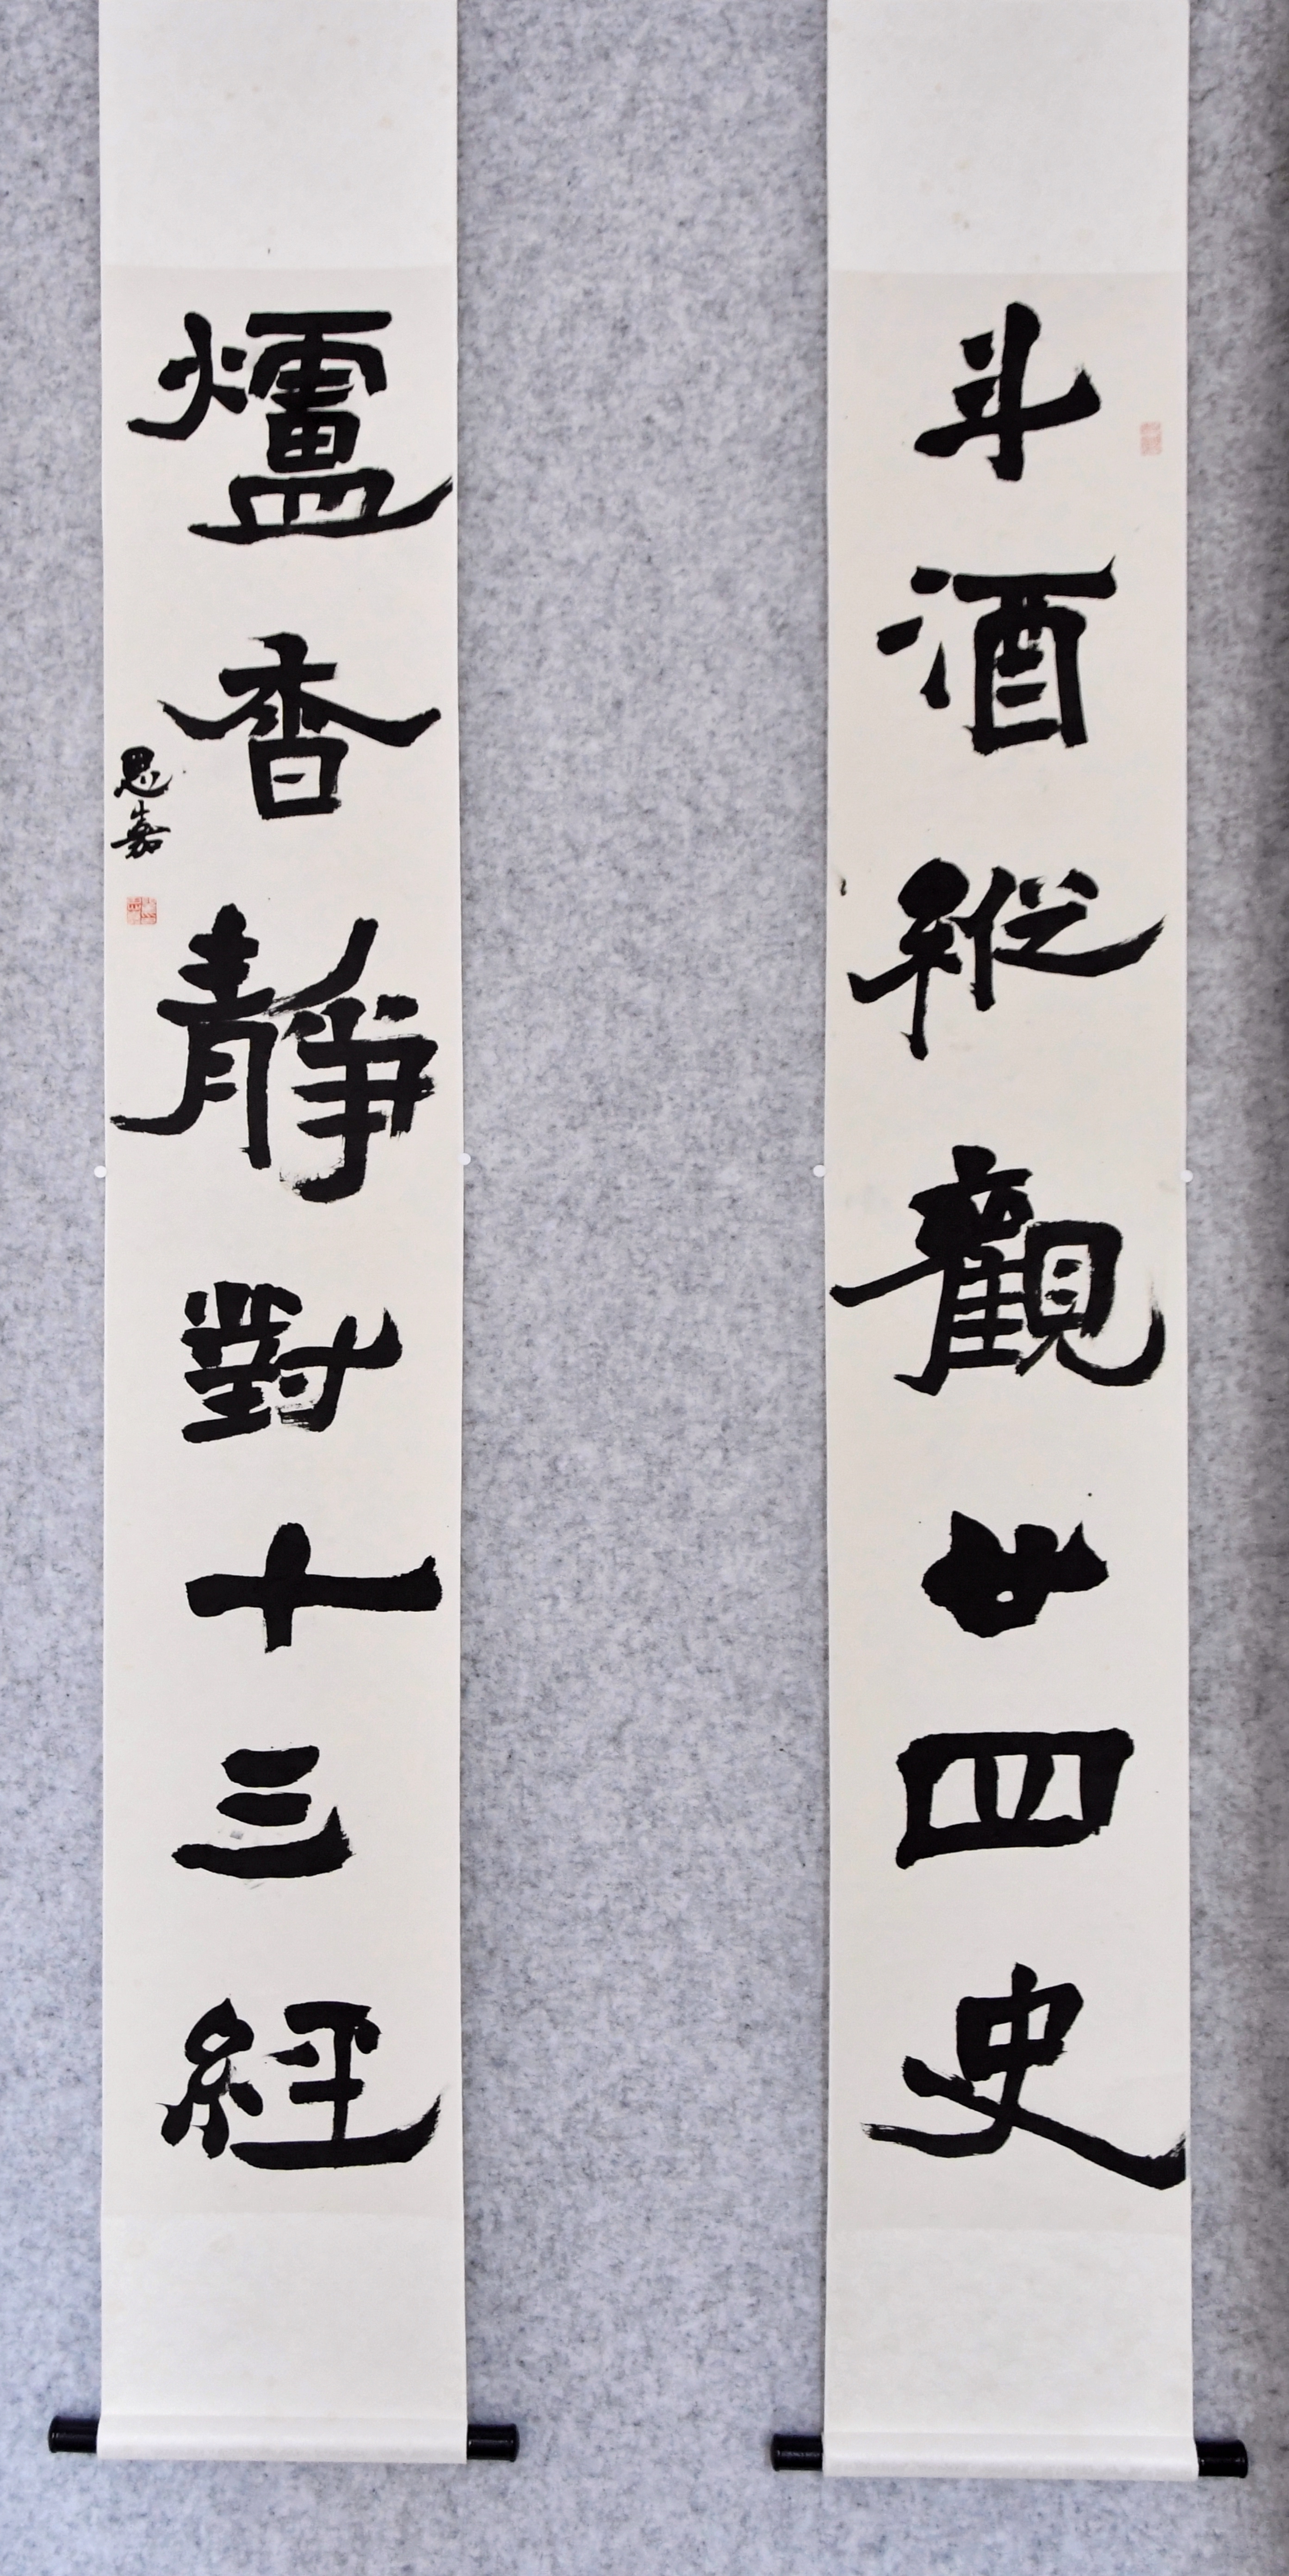 斗酒縱觀廿四史
爐香靜對十三經
思嘉